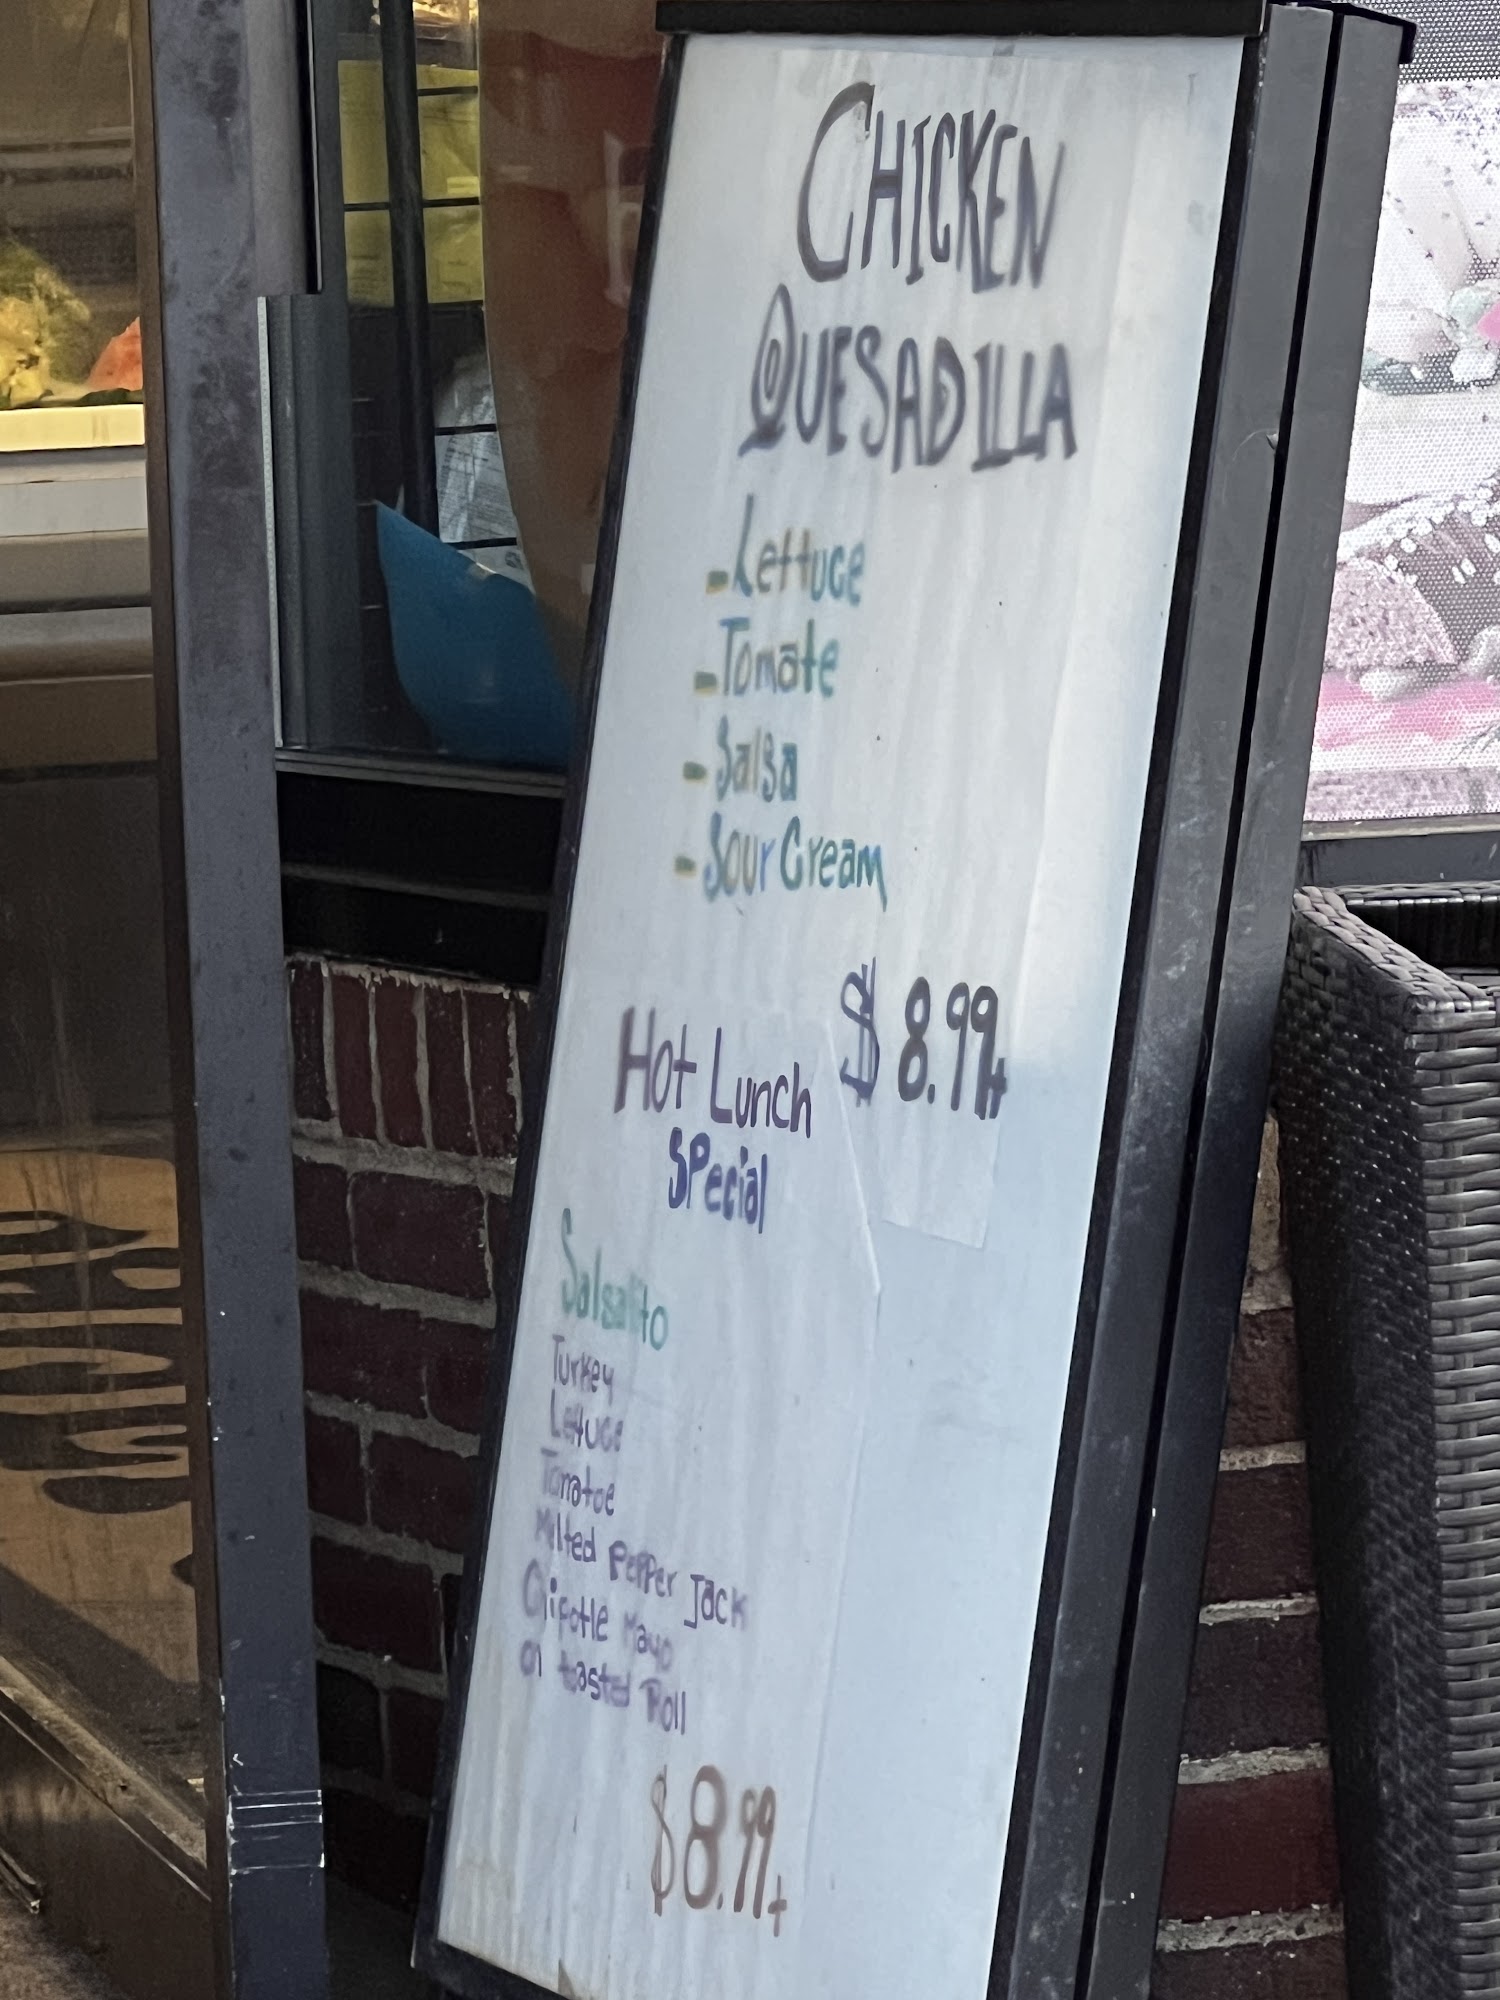 CHICKEN
QUESADILLA
-Lettuce
-Tomate
-Salsa
-Sour Cream
$ 8.99+
Hot Lunch
SPecial
Salsalito
Turkey
Lettuce
Tomatoe
Melted PePPer Jack
Chipotle Mayo
on toasted Roll
$8.99+